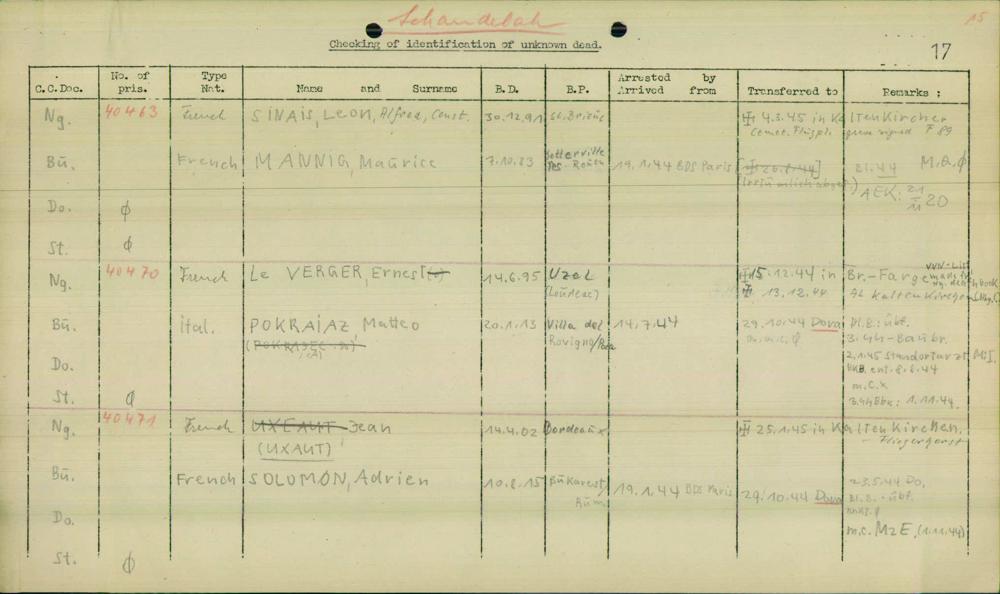 Schandelah
15
Checking of identification of unknown dead.
17
C.C.Doc. No. of pris. Type Nat. Name and Surname B.D. B.P. Arrested by Arrived from Transferred to Remarks :
Ng. 40463 French SINAIS, Leon, Alfred, Const. 30.12.91 St. Brieuc 4.3.45 in Kaltenkirchen
Cemet. Flugpl. grave F 89
Bü. French MANNIG, Maurice 7.10.23 Sotteville les-Rouen 19.1.44 BDS Paris [26.8.44] Bl.44 M.a.ϕ
AEK: 21/11 20
Do. ϕ
St. ϕ
Ng. 40470 French Le VERGER, Ernest 14.6.95 Uzel 15.12.44 in Br.-Farge VVN-List
(Loudeac) 13.12.44 Kaltenkirchen
Bü. ital. POKRAJAZ Matteo 20.1.13 Villa del 14.7.44 29.10.44 Dora Bl.B.: übf.
Rovigno/Pola m.m.c.ϕ 3.SS-Baubr.
Do. 2.1.45 Standortarzt
ent. 8.8.44
m.C.x
St. ϕ 3.SSBbr: 1.11.44.
Ng. 40471 French UXEAUT Jean 14.4.02 Bordeaux 25.1.45 in Kaltenkirchen.
(UXAUT) - Fliegerhorst
Bü. French SOLOMON, Adrien 10.8.15 Bukarest/ 19.1.44 BDS Paris 29.10.44 Dora 23.5.44 Do.
Rum. Bl.B.: übf.
Do.
m.c. MzE, (1.11.44)
St. ϕ